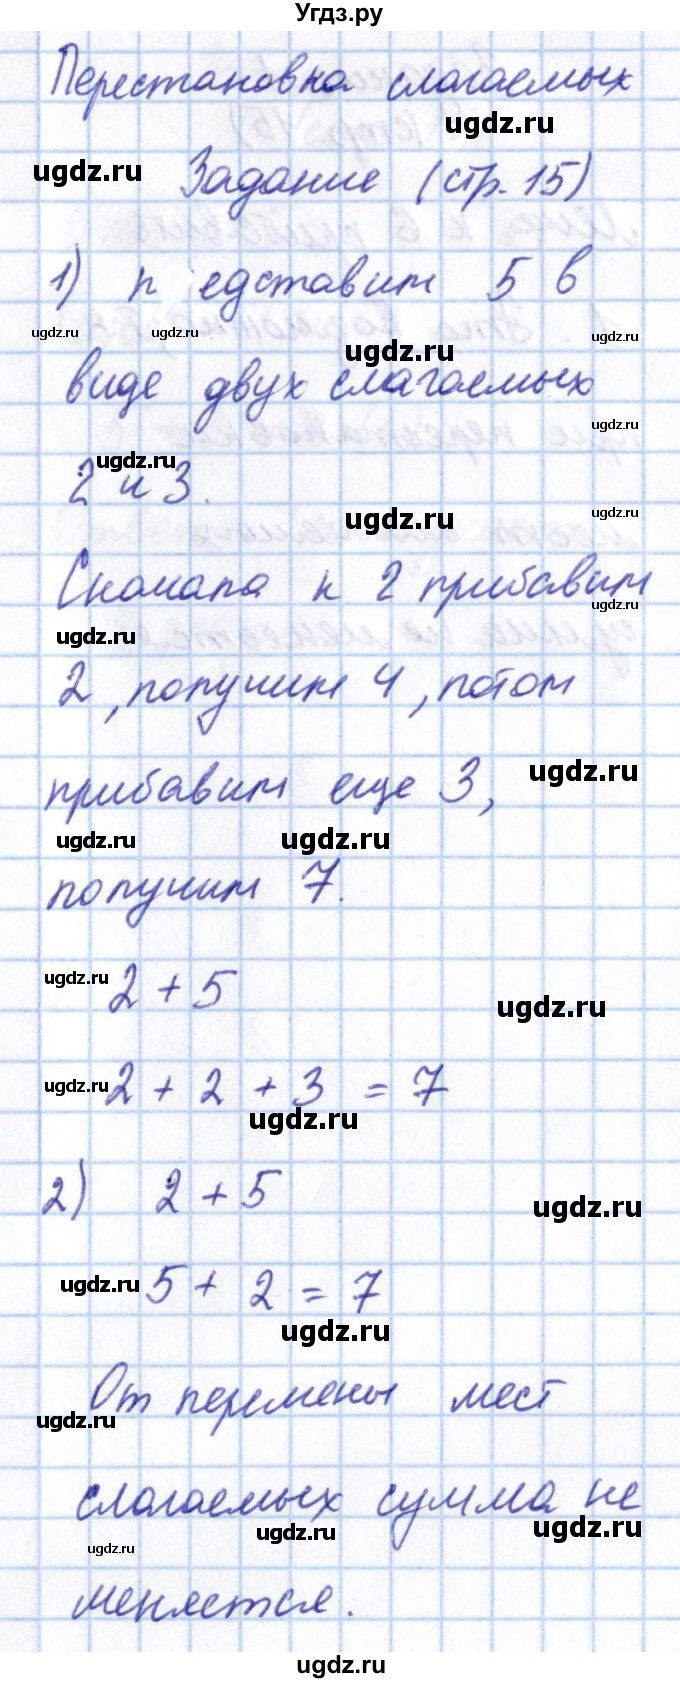 Угдз.ру
Перестановка слагаемых
ugdz.ru
ugdz.ru
Задание (стр. 15)
1) п едставим 5 в
ugdz.ru ugdz.ru ugdz.ru
ugdz.ru
виде двух слагаемых
ugdz.ru
ugdz.ru
2 и 3.
ugdz.ru
ugdz.ru
Сначала к 2 прибавим
ugdz.ru
ugdz.ru
2, получим 4, потом
ugdz.ru
прибавим еще 3,
ugdz.ru ugdz.ru
получим 7.
ugdz.ru
2 + 5
ugdz.ru
ugdz.ru
2 + 2 + 3 = 7
ugdz.ru
2) 2 + 5
ugdz.ru
ugdz.ru
5 + 2 = 7
ugdz.ru
От перемены мест
ugdz.ru
слагаемых сумма не
ugdz.ru ugdz.ru
ugdz.ru
меняется.
ugdz.ru